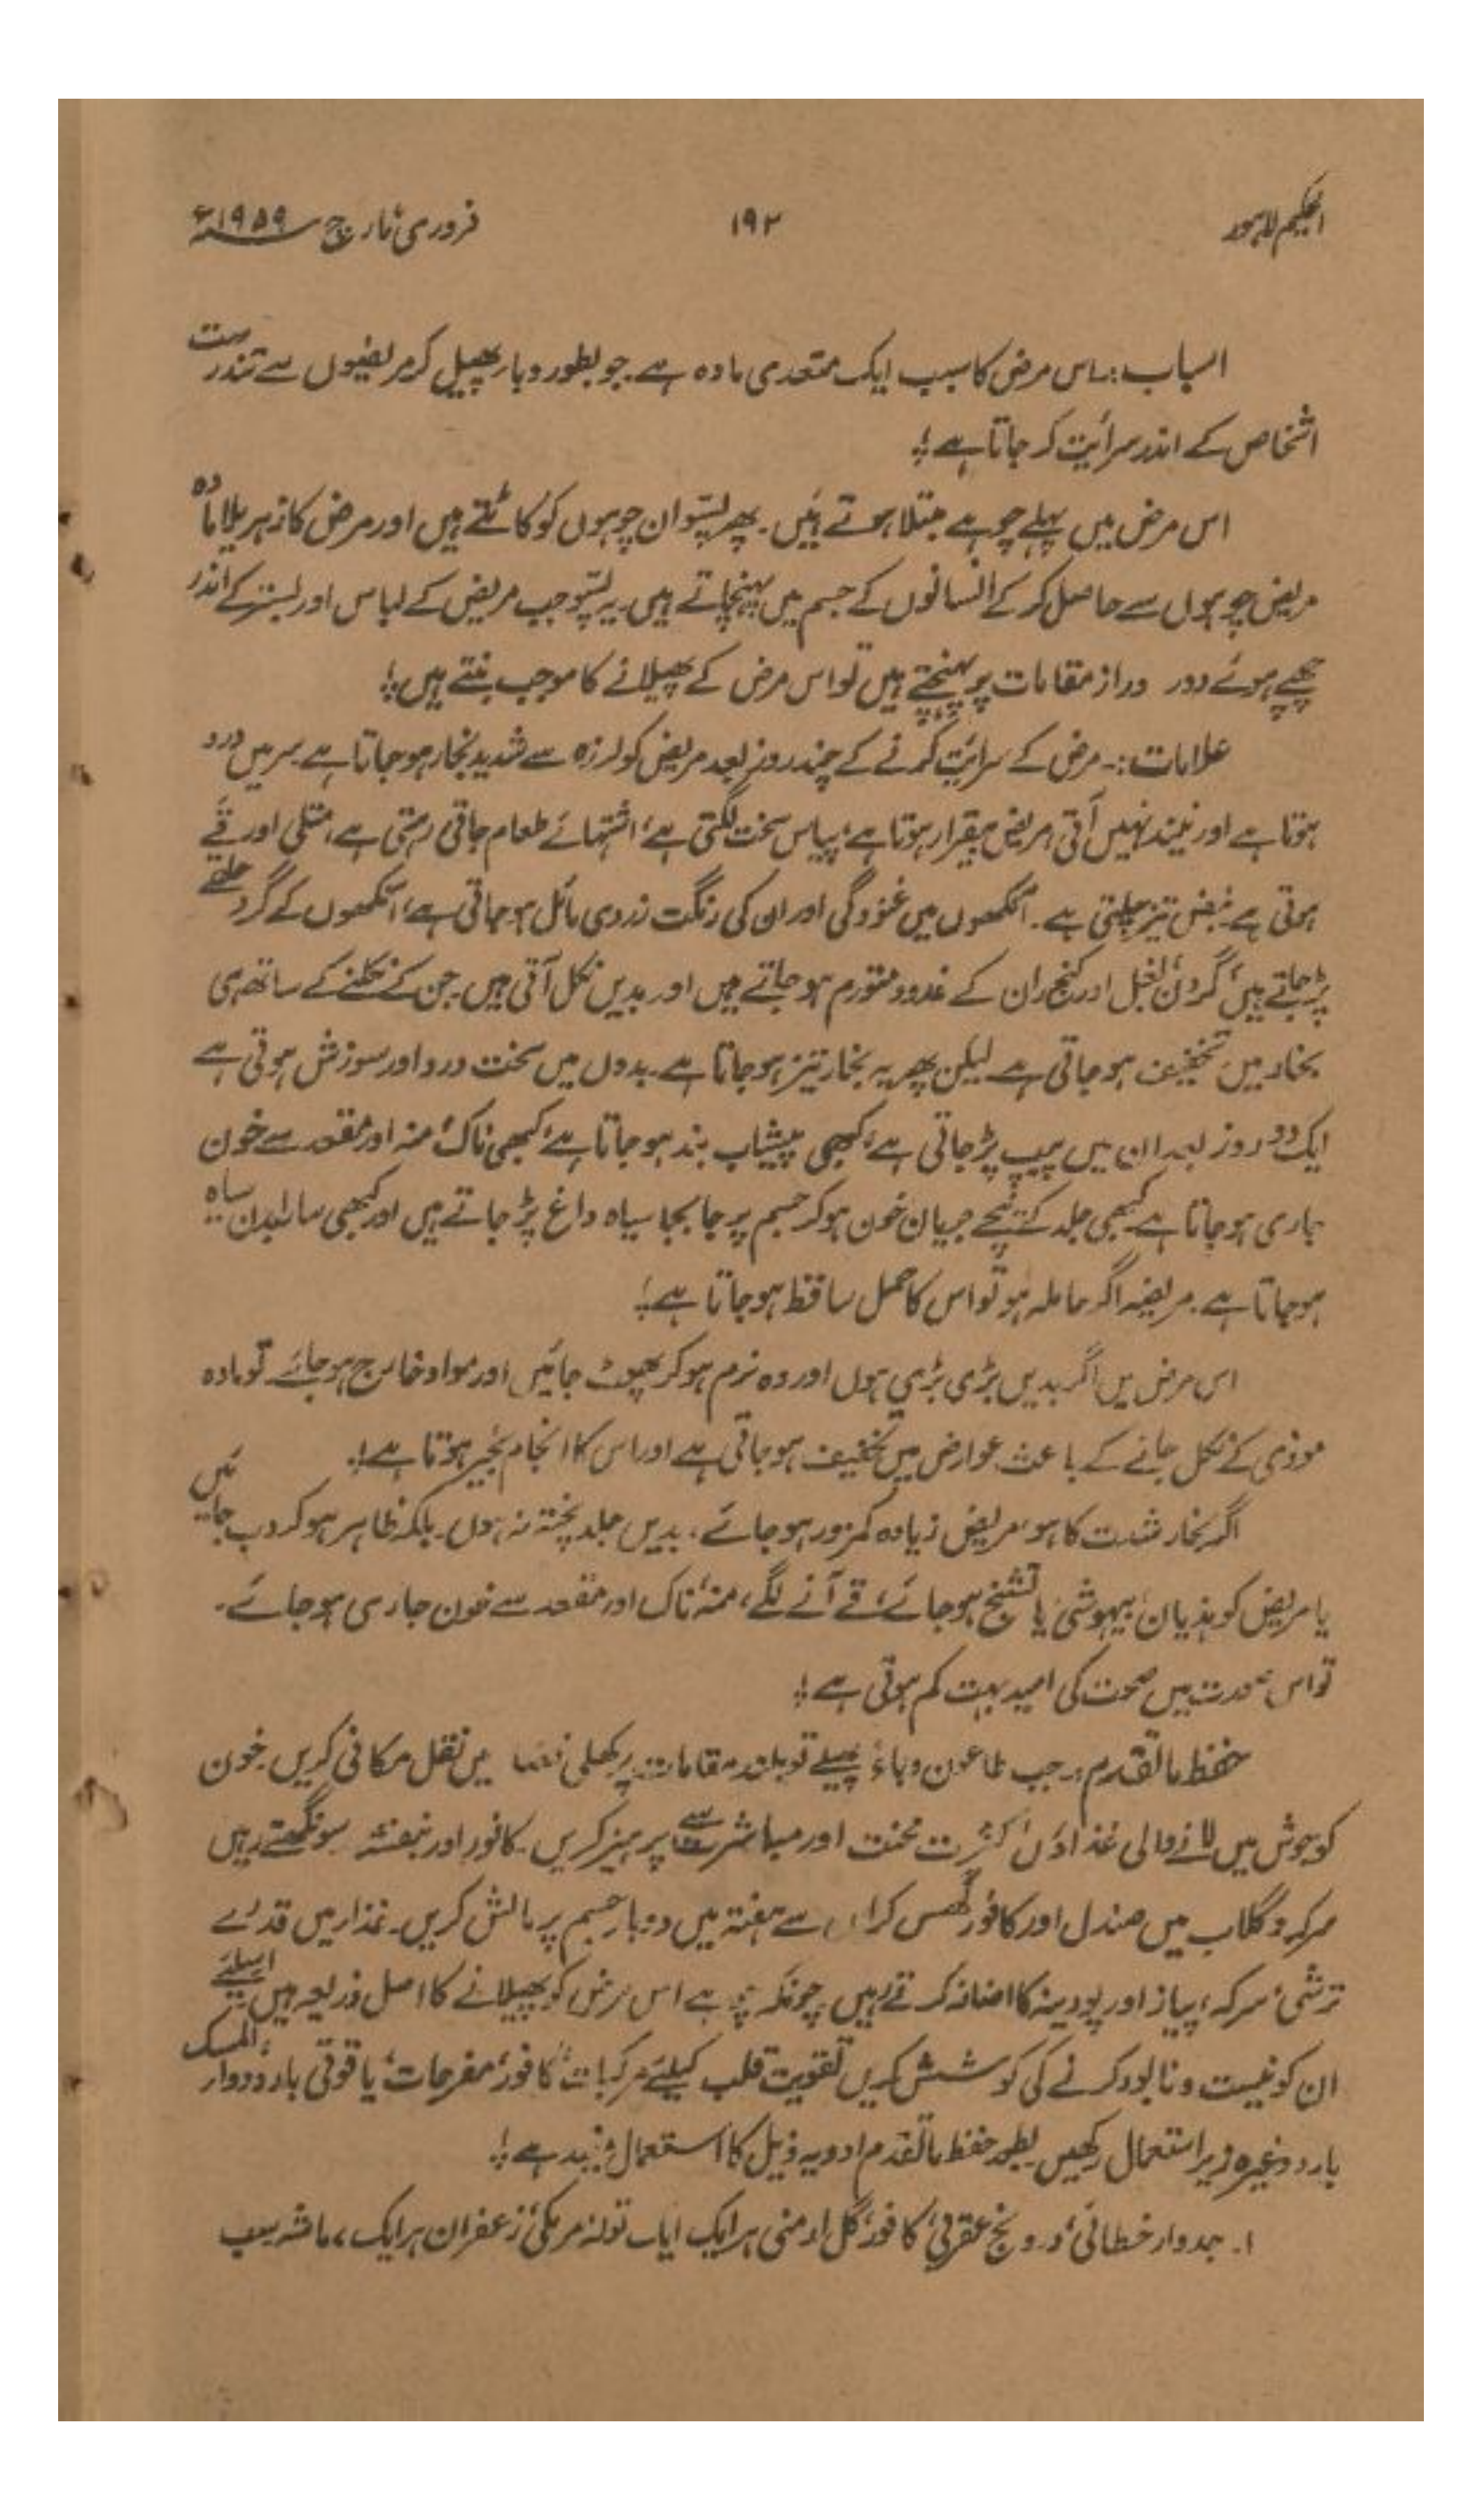 الحکیم لاہور ۱۹۲ فروری مارچ سنہ ۱۹۵۹ء
اسباب:۔ اس مرض کا سبب ایک متعدی مادہ ہے۔ جو بطور وبار پھیل کر مریضوں سے تندرست
اشخاص کے اندر سرائیت کر جاتا ہے؛
اس مرض میں پہلے چوہے مبتلا ہوتے ہیں۔ پھر پسّو ان چوہوں کو کاٹتے ہیں اور مرض کا زہریلا مادہ
مریض چوہوں سے حاصل کر کے انسانوں کے جسم میں پہنچاتے ہیں۔ یہ پسّو جب مریض کے لباس اور بستر کے اندر
چھپے ہوئے دور دراز مقامات پر پہنچتے ہیں تو اس مرض کے پھیلانے کا موجب بنتے ہیں؛
علامات:۔ مرض کے سرائیت کرنے کے چند روز بعد مریض کو لرزہ سے شدید بخار ہو جاتا ہے سر میں درد
ہوتا ہے اور نیند نہیں آتی، مریض بیقرار ہوتا ہے، پیاس سخت لگتی ہے، اشتہائے طعام جاتی رہتی ہے، متلی اور قے
ہوتی ہے نبض تیز چلتی ہے۔ آنکھوں میں غنودگی اور ان کی رنگت زردی مائل ہو جاتی ہے، آنکھوں کے گرد حلقے
پڑ جاتے ہیں، گردن، بغل اور کنج ران کے غدود متورم ہو جاتے ہیں اور بدیں نکل آتی ہیں جن کے نکلنے کے ساتھ ہی
بخار میں تخفیف ہو جاتی ہے لیکن پھر یہ بخار تیز ہو جاتا ہے۔ بدوں میں سخت درد اور سوزش ہوتی ہے
ایک دو روز بعد ان میں پیپ پڑ جاتی ہے، کبھی پیشاب بند ہو جاتا ہے، کبھی ناک، منہ اور مقعد سے خون
جاری ہو جاتا ہے کبھی جلد کے نیچے جریان خون ہو کر جسم پر جا بجا سیاہ داغ پڑ جاتے ہیں اور کبھی سارا بدن سیاہ
ہو جاتا ہے۔ مریضہ اگر حاملہ ہو تو اس کا حمل ساقط ہو جاتا ہے؛
اس مرض میں اگر بدیں بڑی بڑی ہوں اور وہ نرم ہو کر پھوٹ جائیں اور مواد خارج ہو جائے تو مادہ
موذی کے نکل جانے کے باعث عوارض میں تخفیف ہو جاتی ہے اور اس کا انجام بخیر ہوتا ہے؛
اگر بخار شدت کا ہو، مریض زیادہ کمزور ہو جائے، بدیں جلد پختہ نہ ہوں۔ بلکہ ظاہر ہو کر دب جائیں
یا مریض کو ہذیان، بیہوشی یا تشنج ہو جائے، قے آنے لگے، منہ، ناک اور مقعد سے خون جاری ہو جائے۔
تو اس صورت میں صحت کی امید بہت کم ہوتی ہے؛
حفظ ماتقدم:۔ جب طاعون وباءً پھیلے تو بلند مقامات پر کھلی فضا میں نقل مکانی کریں۔ خون
کو جوش میں لانے والی غذاؤں، کثرت محنت اور مباشرت سے پرہیز کریں۔ کافور اور بنفشہ سونگھتے رہیں
سرکہ و گلاب میں صندل اور کافور گھس کر اس سے ہفتہ میں دو بار جسم پر مالش کریں۔ غذا میں قدرے
ترشی، سرکہ، پیاز اور پودینہ کا اضافہ کرتے رہیں چونکہ چوہے اس مرض کو پھیلانے کا اصل ذریعہ ہیں اسلئے
ان کو نیست و نابود کرنے کی کوشش کریں تقویت قلب کیلئے مرکبات کافور، مفرحات، یاقوتی بارد، دواءالمسک
بارد وغیرہ زیر استعمال رکھیں بطور حفظ ماتقدم ادویہ ذیل کا استعمال مفید ہے؛
۱۔ جدوار خطائی، درونج عقربی، کافور، گل ارمنی ہر ایک ایک تولہ، مرمکی، زعفران ہر ایک ، ماشہ سب